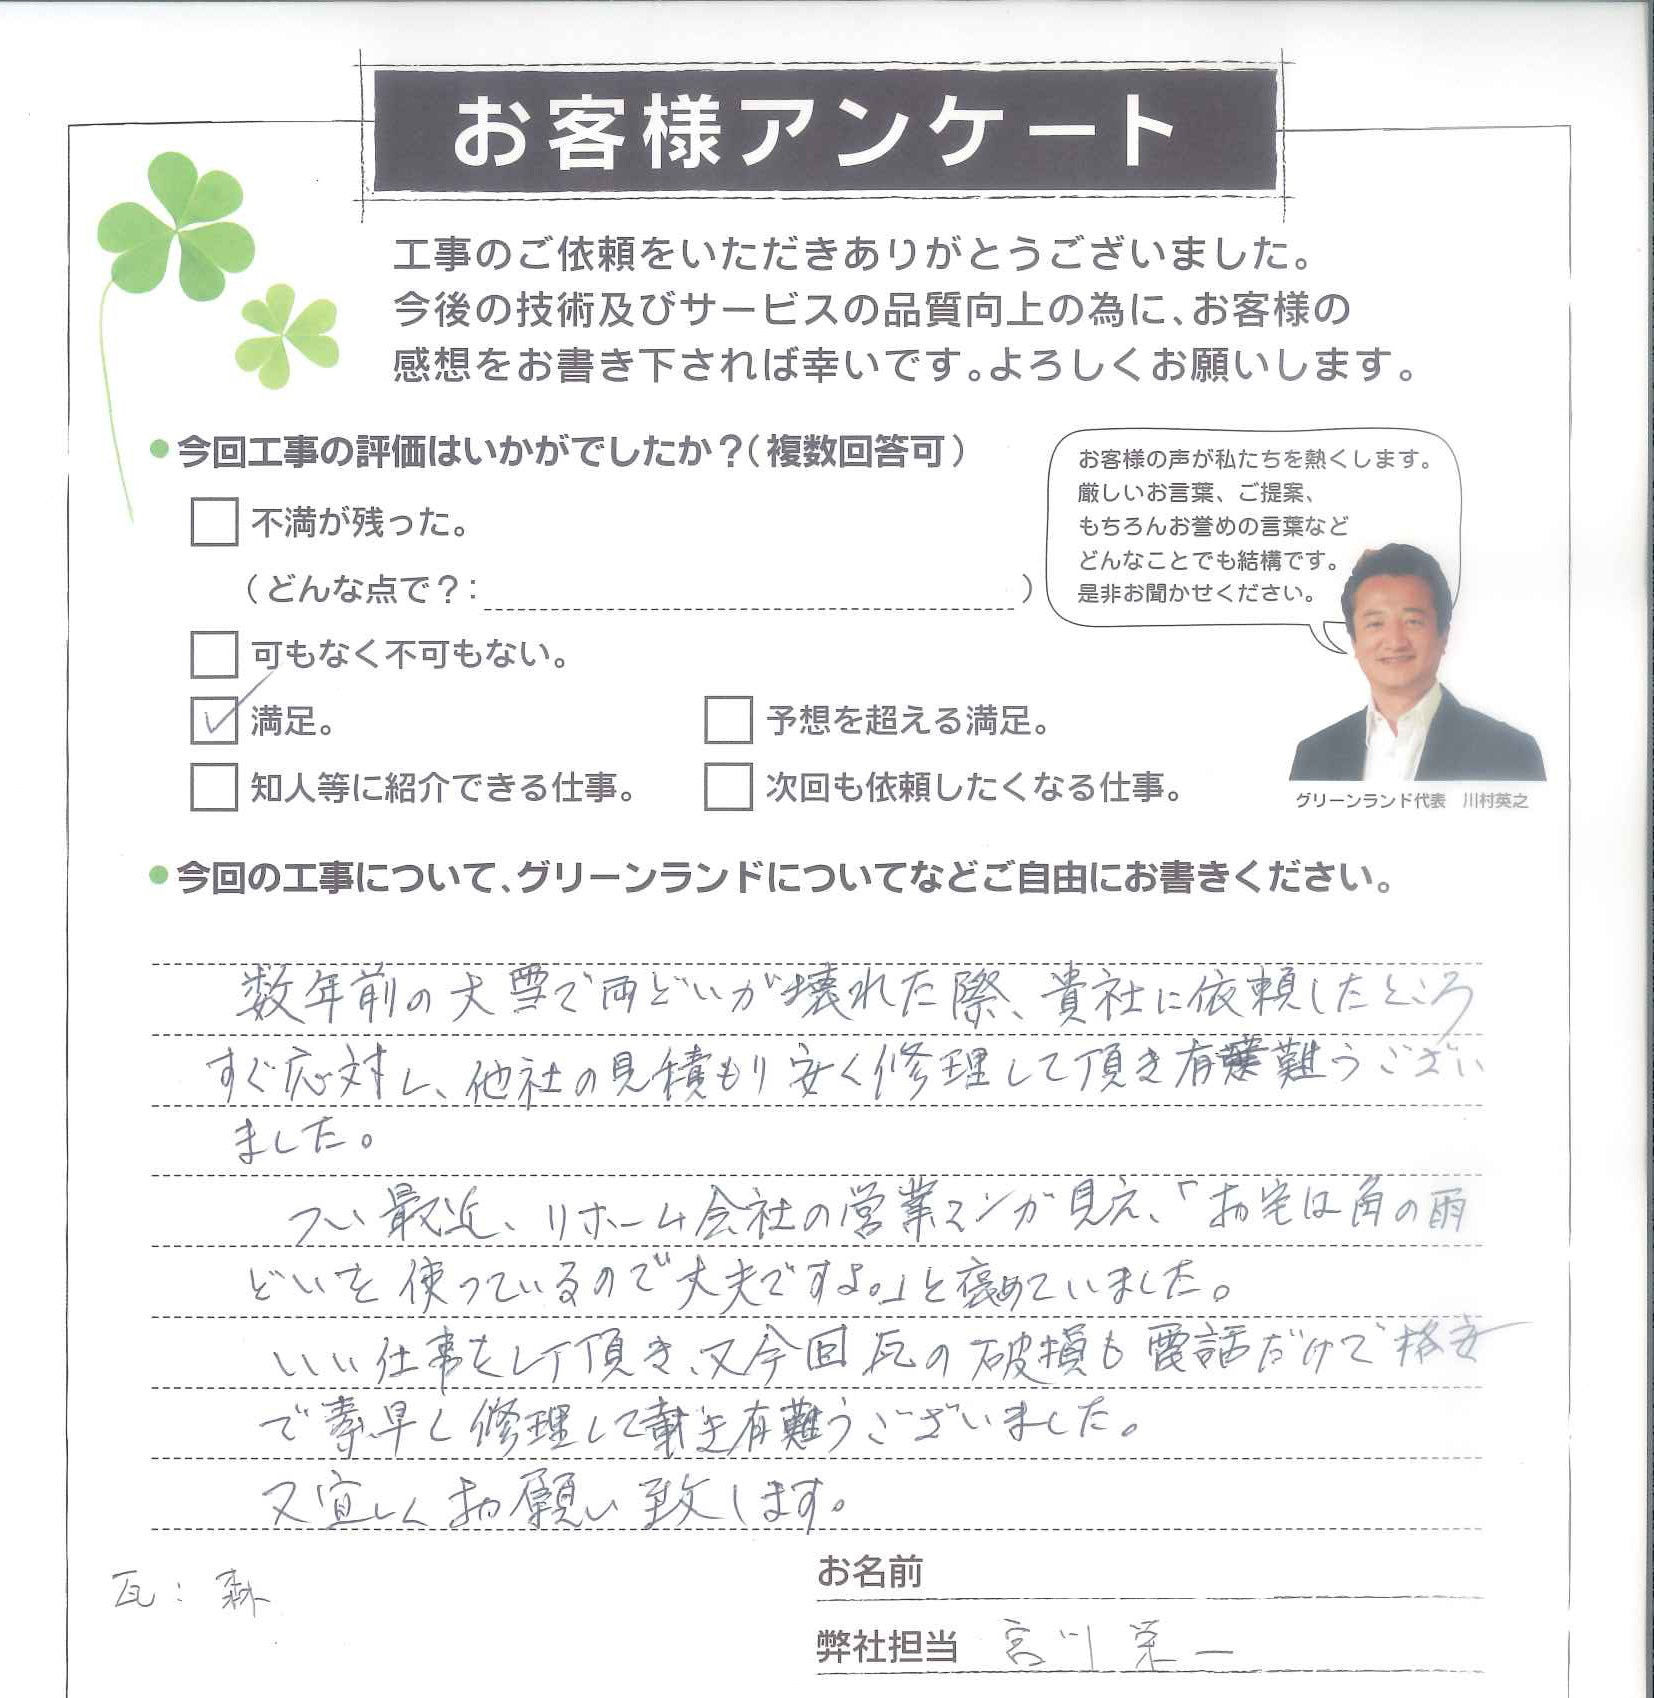 お客様アンケート
工事のご依頼をいただきありがとうございました。
今後の技術及びサービスの品質向上の為に、お客様の
感想をお書き下されれば幸いです。よろしくお願いします。
今回工事の評価はいかがでしたか？（複数回答可）
不満が残った。
（どんな点で？：　）
可もなく不可もない。
満足。
予想を超える満足。
知人等に紹介できる仕事。
次回も依頼したくなる仕事。
お客様の声が私たちを熱くします。
厳しいお言葉、ご提案、
もちろんお誉めの言葉など
どんなことでも結構です。
是非お聞かせください。
グリーンランド代表　川村英之
今回の工事について、グリーンランドについてなどご自由にお書きください。
数年前の大雪で雨どいが壊れた際、貴社に依頼したところ
すぐ応対し、他社の見積もり安く修理して頂き有難うござい
ました。
つい最近、リホーム会社の営業マンが見え、「お宅は角の雨
どいを使っているので丈夫ですよ。」と褒めていました。
いい仕事をして頂き、又今回瓦の破損も電話だけで格安
で素早く修理して戴き有難うございました。
又宜しくお願い致します。
瓦：森
お名前
弊社担当　宮川栄一